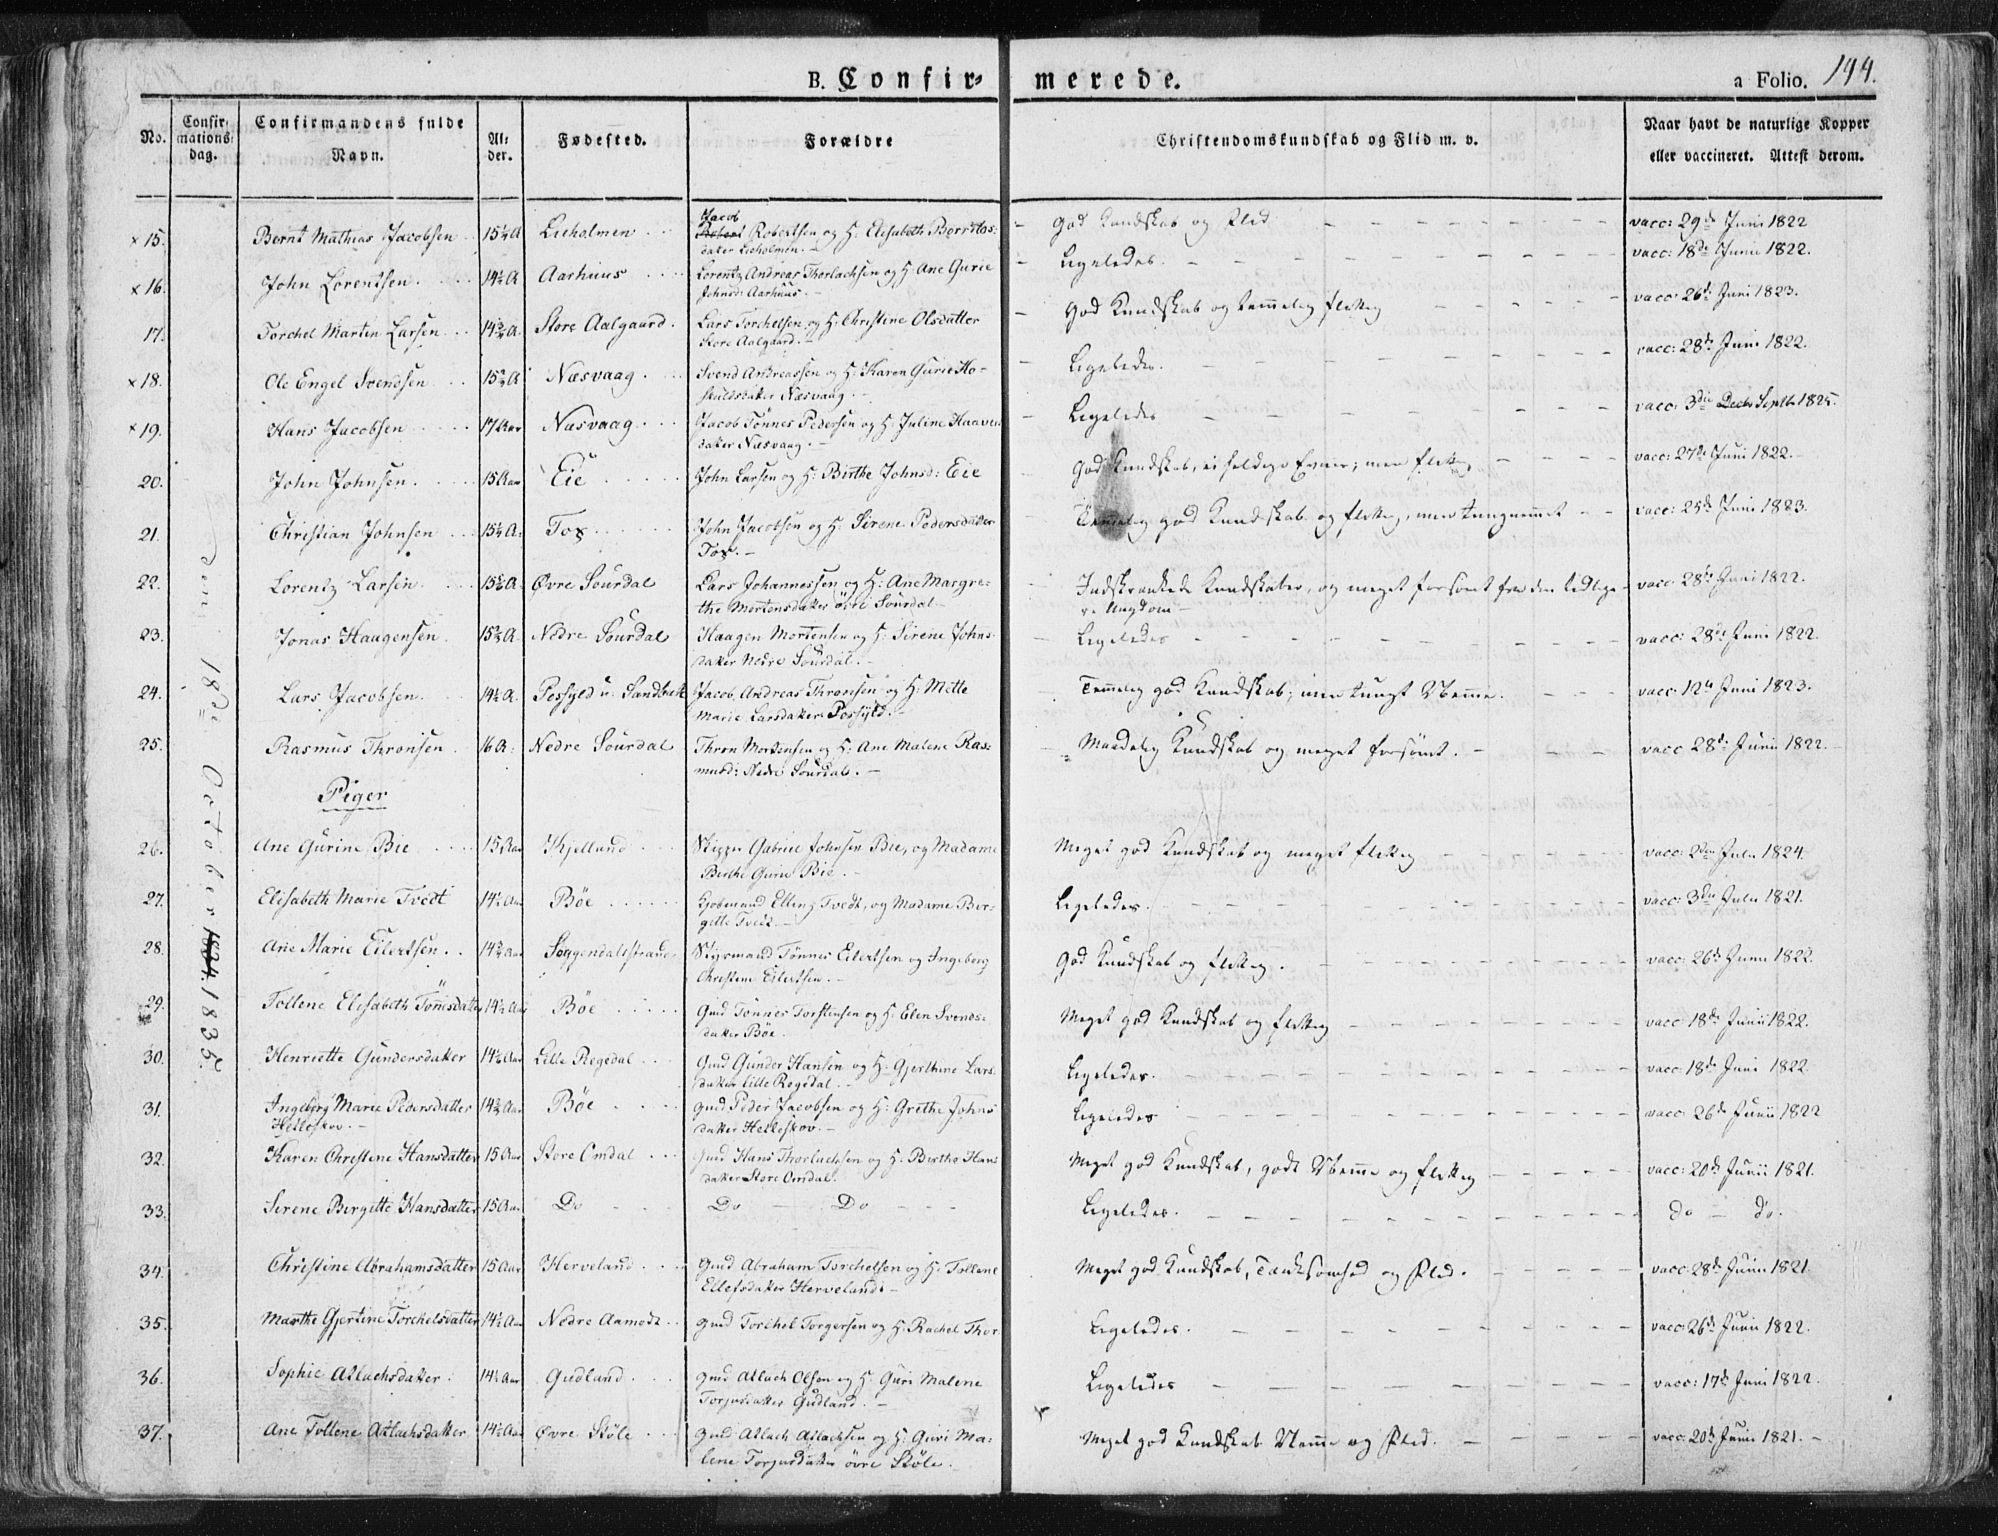 B. Confir-merede. a Folio. 144.
No. Confir-mations-dag. Confirmandens fulde Navn. Al-der. Fødested. Forældre Christendomskundskab og Flid m. v. Naar havt de naturlige Kopper eller vaccineret. Attest derom.
18de October 1834 1835
×15. Bernt Mathias Jacobsen 15 A Lieholmen Jacob Robertsen og H: Elisabeth
dater Lieholmen. God Kundskab og Flid vacc: 29de Juni 1822
×16. John Lorentsen. 14½ A Aarhuus Lorentz Andreas Thorlachsen og H: Ane Gurie
Johnsd: Aarhuus. Ligeledes. vacc: 18de Junii 1822.
17. Torchel Martin Larsen 14 A. Store Aalgaard. Lars Torchelsen og H: Christine Olsdatter
Store Aalgaard. God Kundskab og temmelig flittig vacc: 26de Juni 1823.
×18. Ole Engel Svendsen 15 A Næsvaag. Svend Andreassen og H: Karen Gurie Ho-
skuldsdatter Næsvaag. Ligeledes. vacc: 28de Juni 1822.
×19. Hans Jacobsen 17 Aar Næsvaag Jacob Tönnes Pedersen og H: Juline Haavers
datter Næsvaag. Ligeledes vacc: 3die Septb 1825.
20. John Johnsen. 15 Aar Eie John Larsen og H: Birthe Johnsd: Eie God Kundskab, ei heldige Evner; men flittig vacc: 27de Juni 1822.
21. Christian Johnsen 15 A: Tox John Jacobsen og H: Sirene Pedersdatter
Tox. Temmelig god Kundskab og flittig, men tungnemmet vacc: 25de Juni 1823.
22. Lorentz Larsen 15 A: Øvre Sourdal Lars Johannessen og H: Ane Margre-
the Mortensdatter övre Sourdal Indskrænkede Kundskaber, og meget forsömt fra den tidlige-
re Ungdom vacc: 28de Juni 1822.
23. Jonas Haagensen 15 A. Nedre Sourdal Haagen Mortensen og H: Sirene Johns-
datter Nedre Sourdal. Ligeledes vacc: 28de Juni 1822
24. Lars Jacobsen. 14½ A. Jacob Andreas Thronsen og H: Mette
Marie Larsdatter Temmelig god Kundskab; men tungt Nemme. vacc: 12te Juni 1823.
25. Rasmus Thronsen 16 A: Nedre Sourdal Thron Mortensen og H: Ane Malene Ras-
musd: Nedre Sourdal. Maadelig Kundskab og meget forsömt. vacc 28de Junii 1822.
Piger
26. Ane Gurine Bie 15 Aar Kjelland Skipper Gabriel Johnsen Bie, og Madame
Berthe Gurie Bie. Meget god Kundskab og meget flittig vacc: 2den Julii 1824.
27. Elisabeth Marie Tvedt 14½ Aar Bøe Kjöbmand Elling Tvedt, og Madame Ber-
gitte Tvedt. Ligeledes. vacc: 3die Julii 1821.
28. Ane Marie Eilertsen. 14 Aar Soggendalstrand Tönnes Eilertsen og Ingeborg
Christine Eilertsen. God Kundskab og flittig. vacc: 26de Junii 1822.
29. Tollene Elisabeth Tönnesdatter 14½ Aar Bøe Gmd Tönnes Torstensen og H: Elen Svends-
datter Bøe. Meget god Kundskab og flittig vacc 18de Junii 1822.
30. Henriette Gundersdatter 14½ Aar Lille Regedal Gmd Gunder Hansen og H: Gjerthine Lars
datter Lille Regedal. Ligeledes. vacc: 18de Juni 1822.
31. Ingeborg Marie Pedersdatter
Helleskov. 14 Aar Bøe Gmd Peder Jacobsen og H: Grethe Johns
datter Helleskov. Ligeledes vacc: 26de Junii 1822
32. Karen Christine Hansdatter 15 Aar Store Omdal Gmd Hans Thorlachsen og H: Birthe Hans
datter Store Omdal. Meget god Kundskab, godt Nemme og flittig vacc: 20de Junii 1821.
33. Serene Bergitte Hansdatter 15 Aar Do Do Do Ligeledes. do do.
34. Christine Abrahamsdatter 15 Aar Herveland Gmd Abraham Torchelsen og H: Tollene
Ellefsdatter Herveland. Meget god Kundskab, Tænksomhed og Flid. vacc: 28de Junii 1821.
35. Marthe Gjertine Torchelsdatter 14½ Aar Nedre Aamodt Gmd Torchel Torgersen og H: Rachel Thor Ligeledes. vacc: 26de Junii 1822.
36. Sophie Atlachsdatter. 14½ Aar Gudland Gmd Atlach Olsen og H: Guri Malene
Torjusdatter Gudland. Ligeledes vacc: 17de Juni 1822.
37. Ane Tollene Atlachsdatter 14½ Aar Øvre Støle Gmd Atlach Atlachsen og H: Guri Ma-
lene Torjusdatter övre Støle. Meget god Kundskab Nemme og Flid. vacc: 20de Junii 1821.